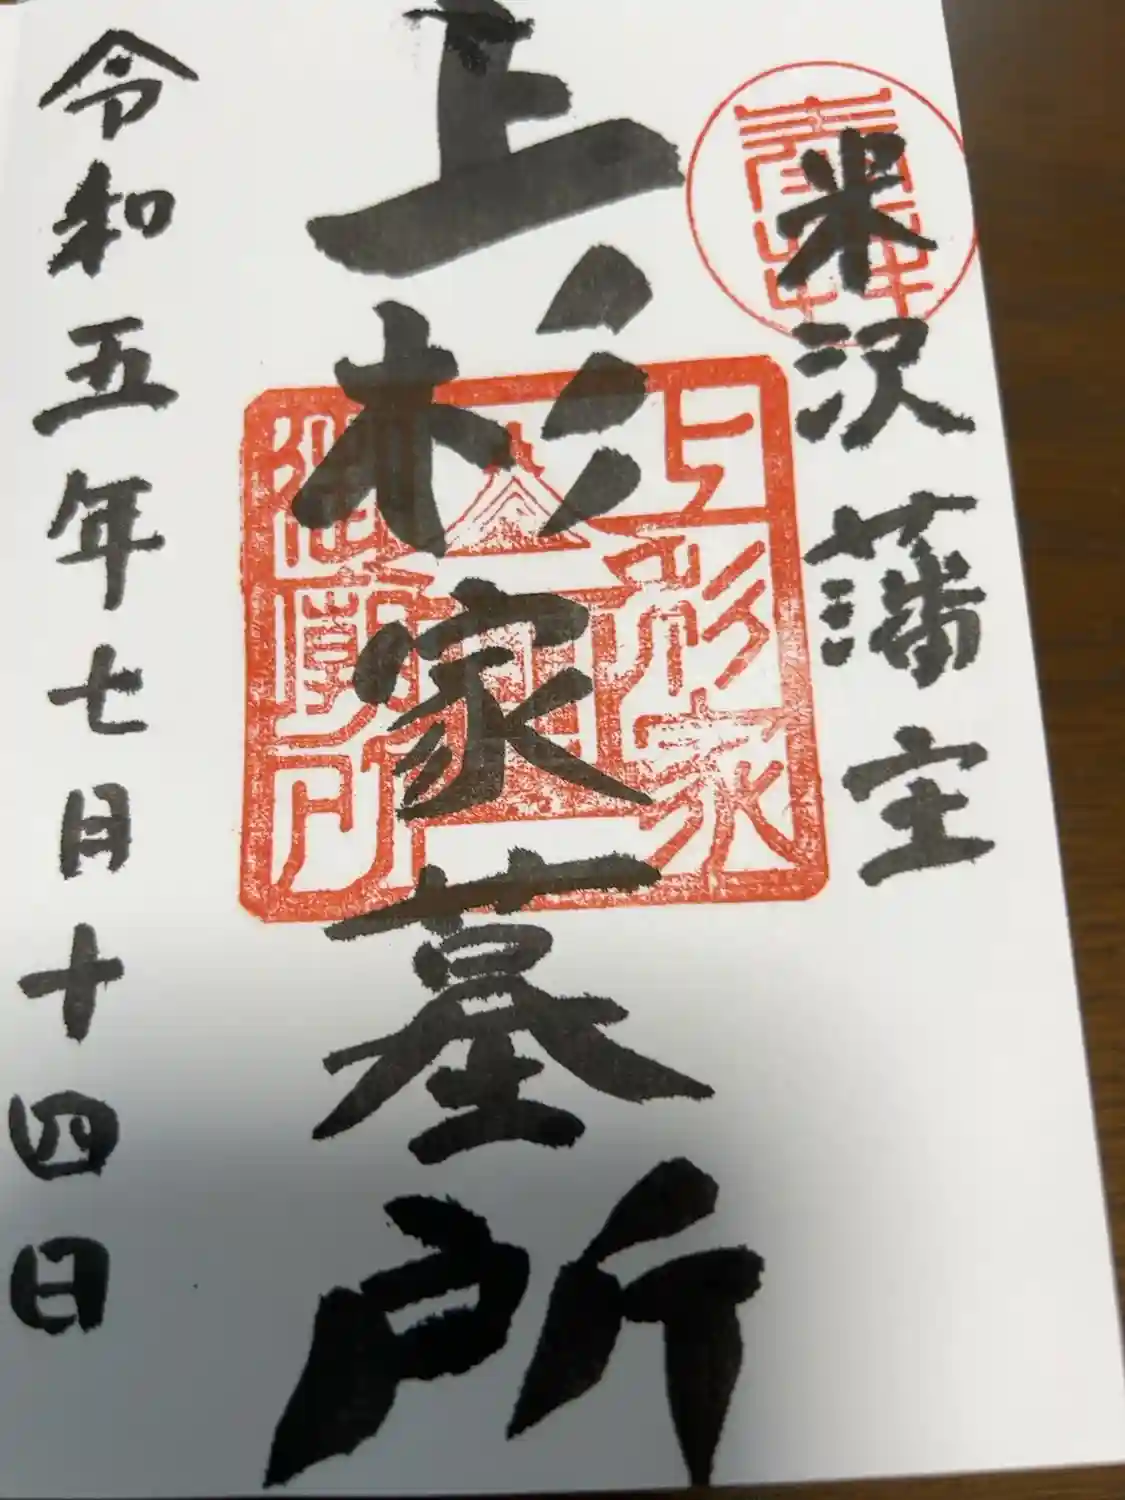 米沢藩主
上杉家墓所
令和五年七月十四日
上杉家
御廟所